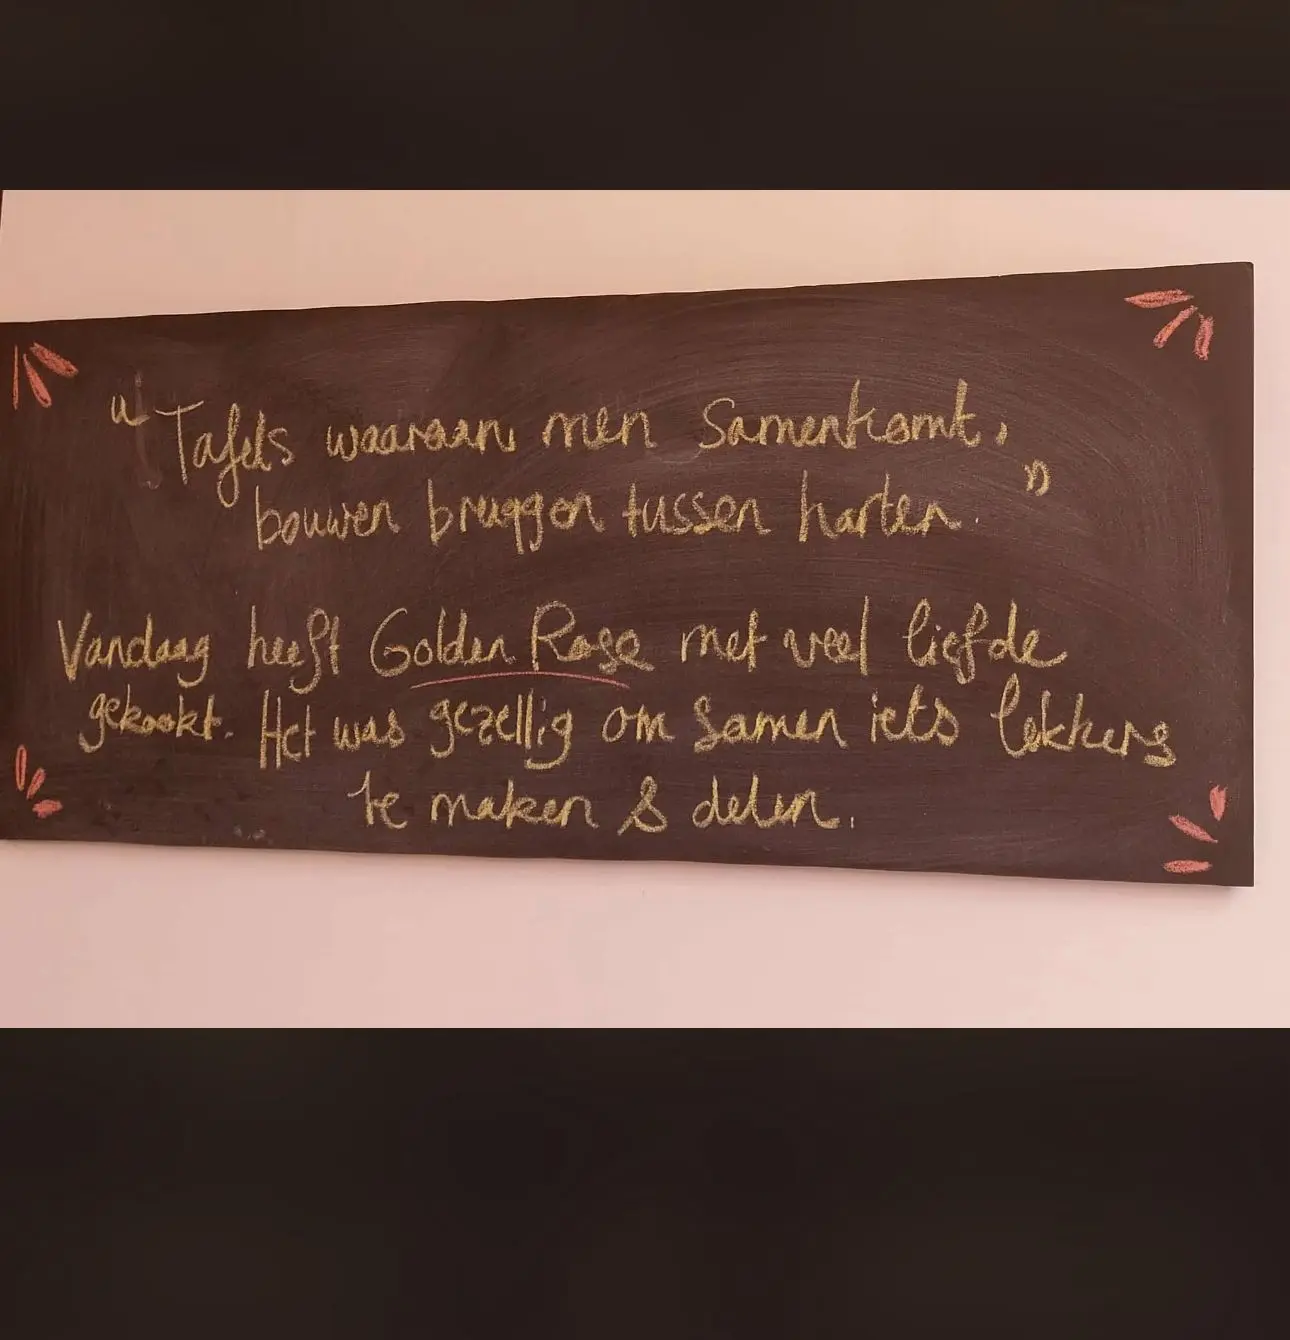 "Tafels waaraan men samenkomt,
bouwen bruggen tussen harten."
Vandaag heeft Golden Rose met veel liefde
gekookt. Het was gezellig om samen iets lekkers
te maken & delen.